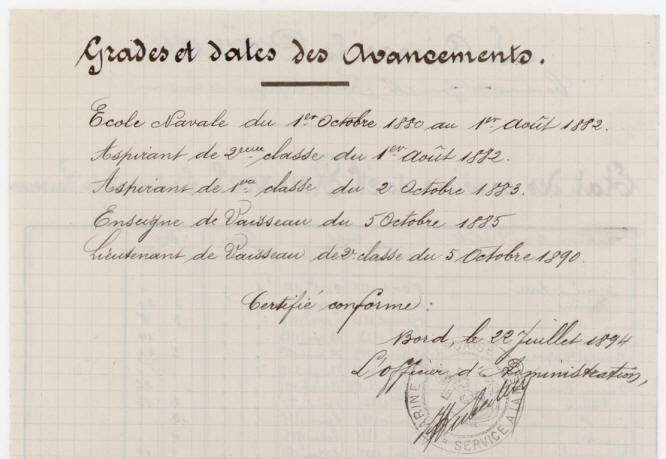 Grades et dates des Avancements.
Ecole Navale du 1er Octobre 1880 au 1er Août 1882.
Aspirant de 2eme classe du 1er Août 1882.
Aspirant de 1ere classe du 2 Octobre 1883.
Enseigne de Vaisseau du 5 Octobre 1885
Lieutenant de Vaisseau de 2e classe du 5 Octobre 1890.
Certifié conforme :
Bord, le 22 Juillet 1894
L'Officier d'Administration,
MARINE
SERVICE A LA